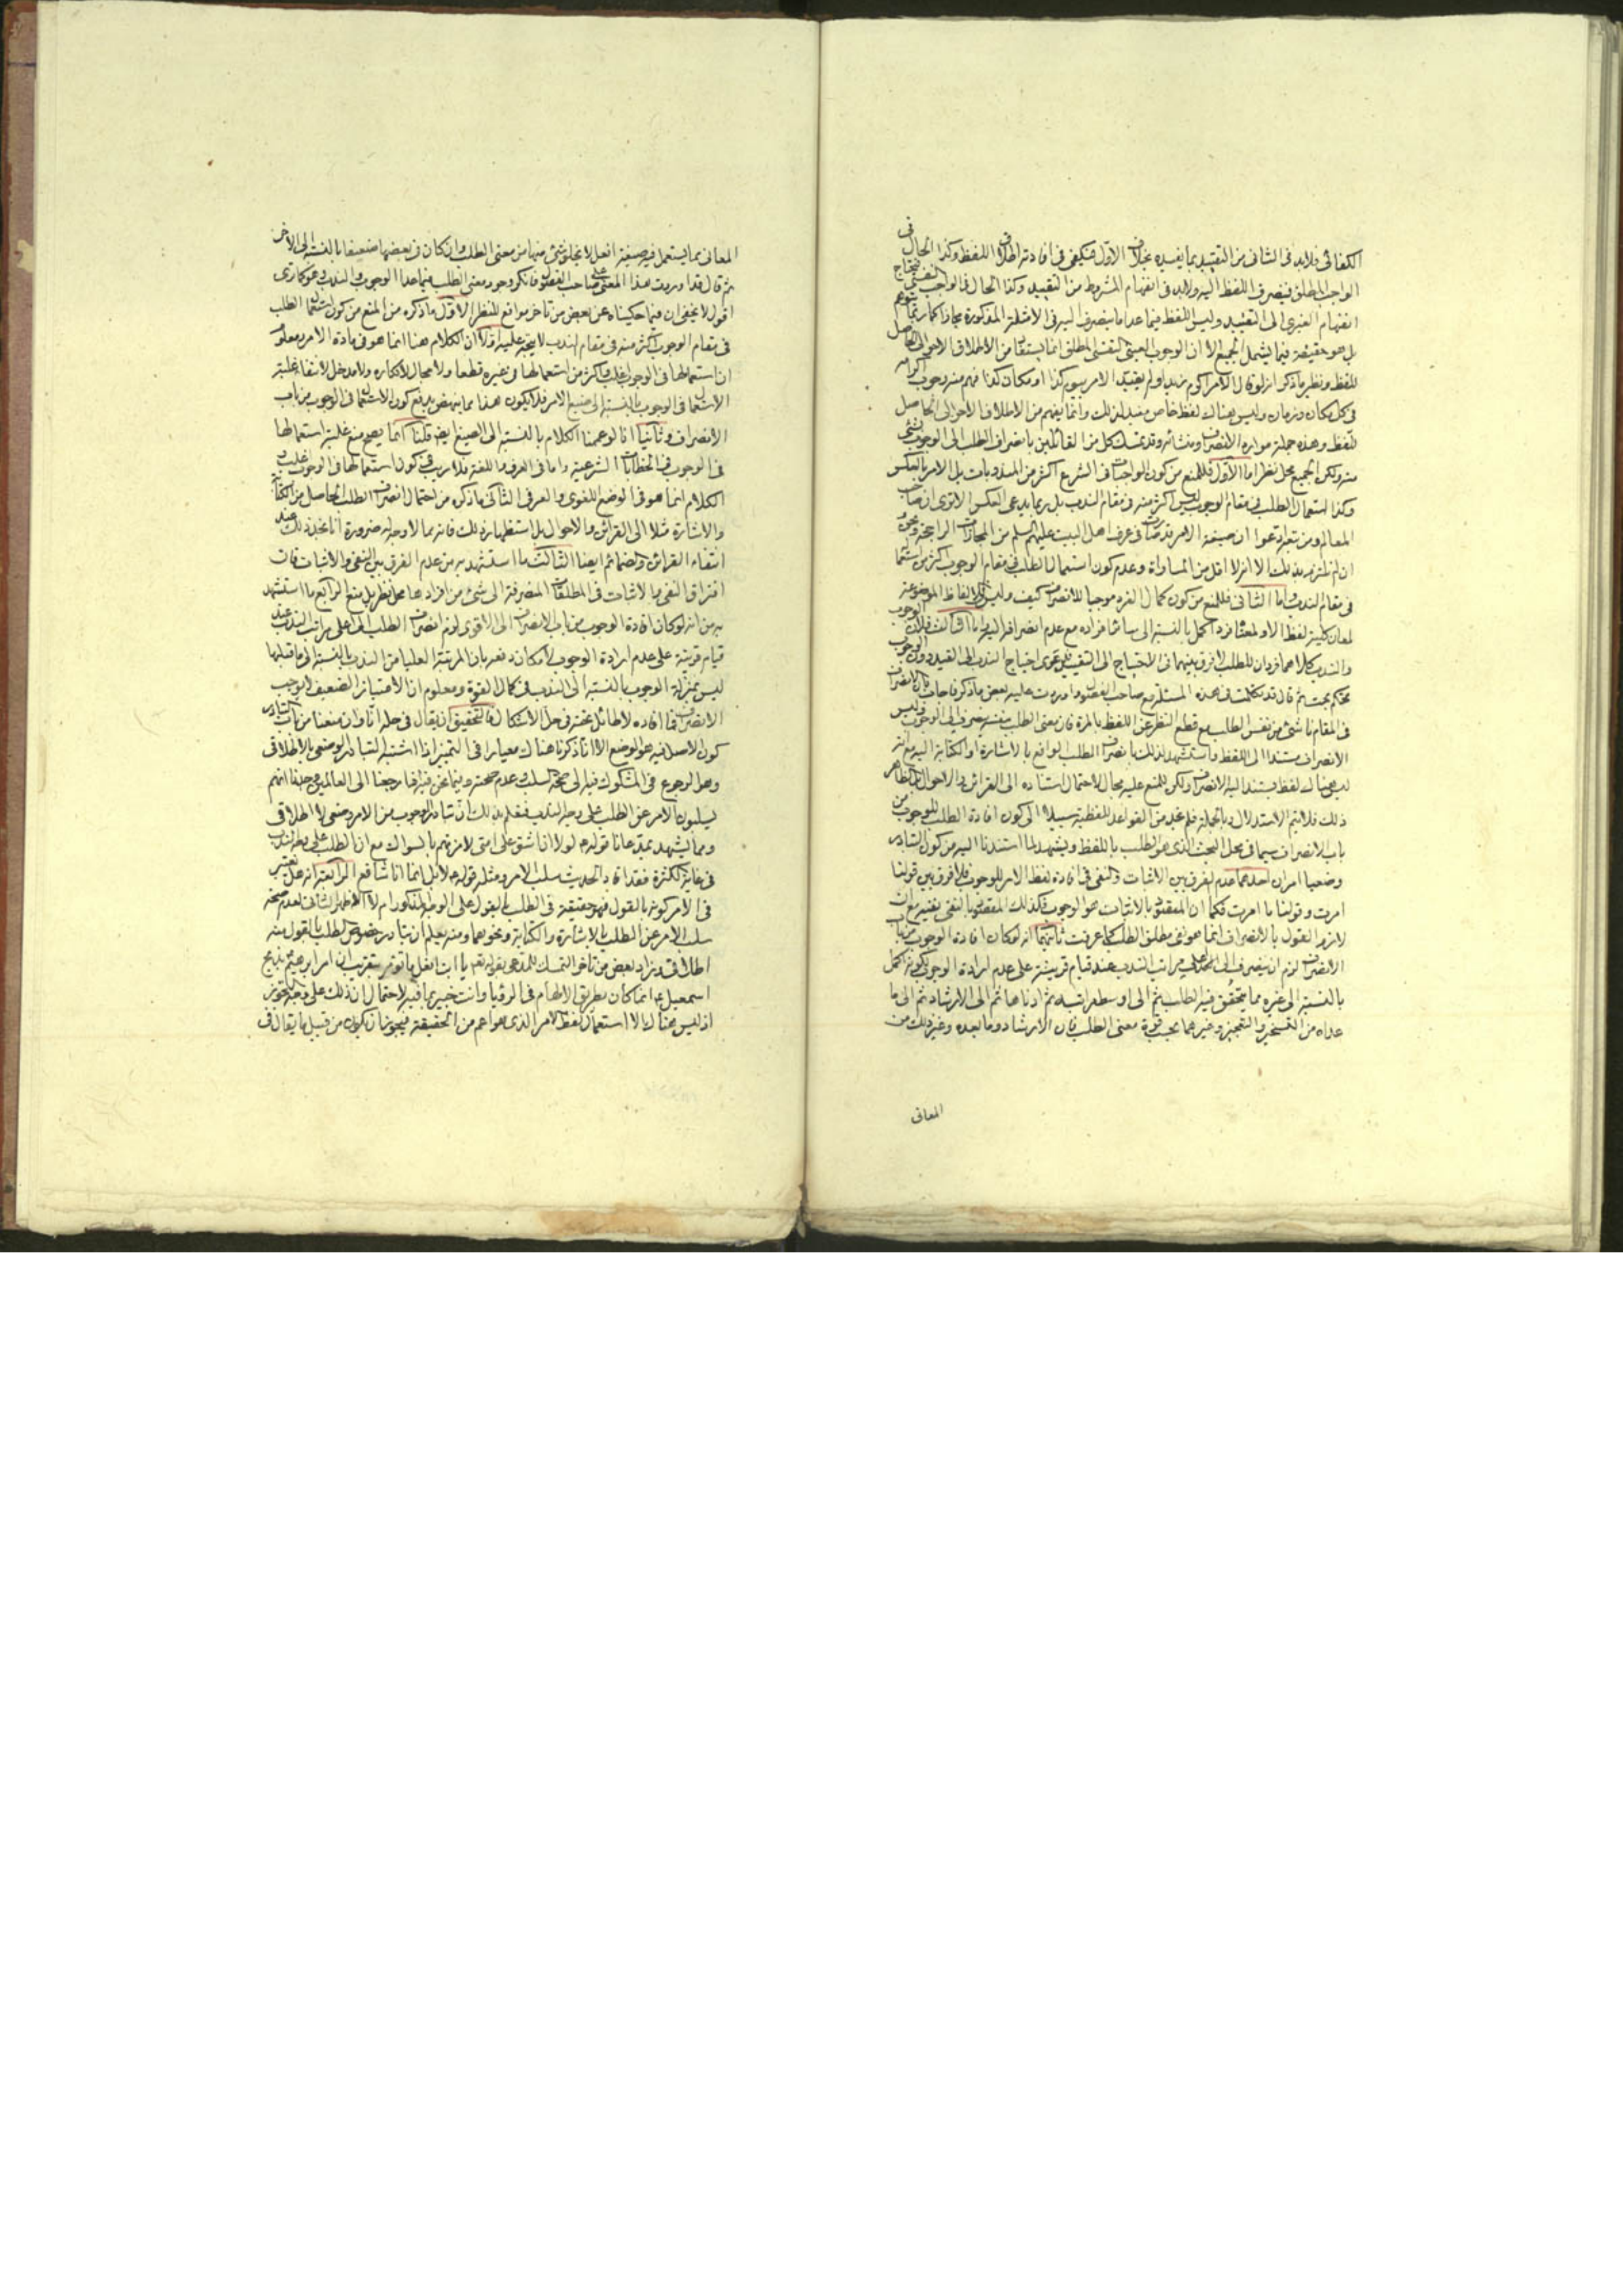 الكفائى فلابد فى الثانى من التقييد بما يفيده بخلاف الاول فيكفى فى افادته اطلاق اللفظ وكذا الحال فى
الواجب المطلق فينصرف اللفظ اليه ولابد فى انفهام المشروط من التقييد وكذا الحال فى الواجب النفسى فيحتاج
انفهام الغيرى الى التقييد وليس اللفظ فيما عدا ما ينصرف اليه فى الامثلة المذكورة مجازا كما ربما يتوهم
بل هو حقيقة فيما يشمل الجميع الا ان الوجوب العينى النفسى المطلق انما يستفاد من الاطلاق الاحوالى الحاصل
للفظ ونظير ما ذكر انه لو قال الامر اكرم زيدا ولم يقيد الامر بيوم كذا او مكان كذا فهم منه وجوب اكرامه
فى كل مكان وزمان وليس هناك لفظ خاص مفيد لذلك وانما يفهم من الاطلاق الاحوالى الحاصل
للفظ وهذه جملة موارد الانصراف ومنشائه وقد تمسك كل من القائلين بانصراف الطلب الى الوجوب بشئ
منه ولكن الجميع محل نظر اما الاول فللمنع من كون الواجبات فى الشرع اكثر من المندوبات بل الامر بالعكس
وكذا استعمال الطلب فى مقام الوجوب ليس اكثر منه فى مقام الندب بل ربما يدعى العكس الا ترى ان صاحب
المعالم ومن تبعه ادعوا ان صيغة الامر قد صارت فى عرف اهل البيت عليهم سلم من المجازات الراجحة ونحن
ان لم نلتزم بذلك الا انه لا اقل من المساواة وعدم كون استعمال الطلب فى مقام الوجوب اكثر من استعماله
فى مقام الندب واما الثانى فللمنع من كون كمال الفرد موجبا للانصراف كيف وليس للالفاظ الموضوعة
لمعان كلية لفظ الا ولمعناه فرد اكمل بالنسبة الى سائر افراده مع عدم انصرافه اليه واما الثالث فلان الوجوب
والندب كلاهما فردان للطلب لا فرق بينهما فى الاحتياج الى التقييد فدعوى احتياج الندب الى القيد دون الوجوب
تحكم بحت ثم قال قد تكلمت فى هذه المسئلة مع صاحب الفصول واوردت عليه بعض ما ذكر فاجاب بان الانصراف
فى المقام ناشئ من نفس الطلب مع قطع النظر عن اللفظ بالمرة فان معنى الطلب بنفسه ينصرف الى الوجوب وليس
الانصراف مستندا الى اللفظ واستشهد لذلك بانصراف الطلب الواقع بالاشارة او الكتابة اليه مع انه
ليس هناك لفظ يستند اليه الانصراف ولكن للمنع عليه مجال لاحتمال استناده الى القرائن والاحوال بل الظاهر
ذلك فلا يتم الاستدلال وبالجملة فلم نجد من القواعد اللفظية سبيلا الى كون افادة الطلب للوجوب من
باب الانصراف سيما فى محل البحث الذى هو الطلب باللفظ ويشهد لما استندنا اليه من كون التبادر
وضعيا امران احدهما عدم الفرق بين الاثبات والنفى فى افادة لفظ الامر للوجوب فلا فرق بين قولنا
امرت وقولنا ما امرت فكما ان المقصود بالاثبات هو الوجوب فكذلك المقصود بالنفى نفيه مع ان
لازم القول بالانصراف انما هو نفى مطلق الطلب كما عرفت ثانيهما انه لو كان افادة الوجوب من باب
الانصراف لزم ان ينصرف الى اعلى مراتب الندب عند قيام قرينة على عدم ارادة الوجوب لكونه اكمل
بالنسبة الى غيره مما يتحقق فيه الطلب ثم الى اوسط مراتبه ثم ادناها ثم الى الارشاد ثم الى ما
عداه من التسخير والتعجيز وغيرهما بحسب قوة معنى الطلب فان الارشاد وما بعده وغير ذلك من
المعانى
المعانى مما يستعمل فيه صيغة افعل لا يخلو شئ منها من معنى الطلب وان كان فى بعضها ضعيفا بالنسبة الى الاخر
ثم قال قد اوردت هذا المعنى على صاحب الفصول فانكر وجود معنى الطلب فيما عدا الوجوب والندب وهو كما ترى
اقول لا يخفى ان فيما حكيناه عن بعض من تاخر مواقع للنظر الاول ما ذكره من المنع من كون استعمال الطلب
فى مقام الوجوب اكثر منه فى مقام الندب لا يتجه عليه اولا ان الكلام هنا انما هو فى مادة الامر ومعلوم
ان استعمالها فى الوجوب اغلب واكثر من استعمالها فى غيره قطعا ولا مجال لانكاره ولا مدخل لانتفاء غلبة
الاستعمال فى الوجوب بالنسبة الى صيغ الامر فلا يكون هذا مما ينهض بدفع كون الاستعمال فى الوجوب من باب
الانصراف وثانيا انا لو عممنا الكلام بالنسبة الى الصيغ ايضا قلنا انما يصح منع غلبة استعمالها
فى الوجوب فى الخطابات الشرعية واما فى العرف واللغة فلا ريب فى كون استعمالها فى الوجوب اغلب و
الكلام انما هو فى الوضع اللغوى والعرفى الثانى ما ذكره من احتمال انصراف الطلب الحاصل من الكتابة
والاشارة مثلا الى القرائن والاحوال بل استظهار ذلك فانه مما لا وجه له ضرورة انا نجد ذلك عند
انتفاء القرائن والضمائم ايضا الثالث ما استشهد به من عدم الفرق بين النفى والاثبات فان
افتراق النفى والاثبات فى المطلقات المنصرفة الى شئ من افرادها محل نظر بل منع الرابع ما استشهد
به من انه لو كان افادة الوجوب من باب الانصراف الى الاقوى لزم انصراف الطلب الى اعلى مراتب الندب عند
قيام قرينة على عدم ارادة الوجوب لامكان دفعه بان المرتبة العليا من الندب بالنسبة الى ما قبلها
ليس بمنزلة الوجوب بالنسبة الى الندب فى كمال القوة ومعلوم ان الامتياز الضعيف لا يوجب
الانصراف فما افاده لا طائل تحته فى حل الاشكال فالتحقيق ان يقال فى حله انا وان منعنا من باب التبادر
كون الاصل فيه هو الوضع الا انا ذكرنا هناك معيارا فى التميز اذا اشتبه التبادر الوضعى بالاطلاقى
وهو الرجوع فى المشكوك فيه الى صحة السلب وعدم صحته وفيما نحن فيه اذا رجعنا الى العالمين وجدنا انهم
يسلبون الامر عن الطلب على وجه الندب فنعلم بذلك ان تبادر الوجوب من الامر وضعى لا اطلاقى
ومما يشهد بمدعانا قوله ع لولا ان اشق على امتى لامرتهم بالسواك مع ان الطلب على وجه الندب
فى غاية الكثرة فقد افاد الحديث سلب الامر ومثله قوله ع لا بل انما انا شافع الرابعة انه هل يعتبر
فى الامر كونه بالقول فهو حقيقة فى الطلب بالقول على الوجه المذكور ام لا الاظهر الثانى لعدم صحة
سلب الامر عن الطلب بالاشارة والكتابة ونحوهما ومنه يعلم ان تبادر خصوص الطلب بالقول منه
اطلاقى وزاد بعض من تاخر التمسك للمدعى بقوله تعم يا ابت افعل ما تؤمر بتقريب ان امر ابرهيم بذبح
اسمعيل ع انما كان بطريق الالهام فى الرؤيا وانت خبير بما فيه لاحتمال ان ذلك على وجه التجوز
اذ ليس هناك الا استعمال لفظ الامر الذى هو اعم من الحقيقة فيجوز ان يكون من قبيل ما يقال فى